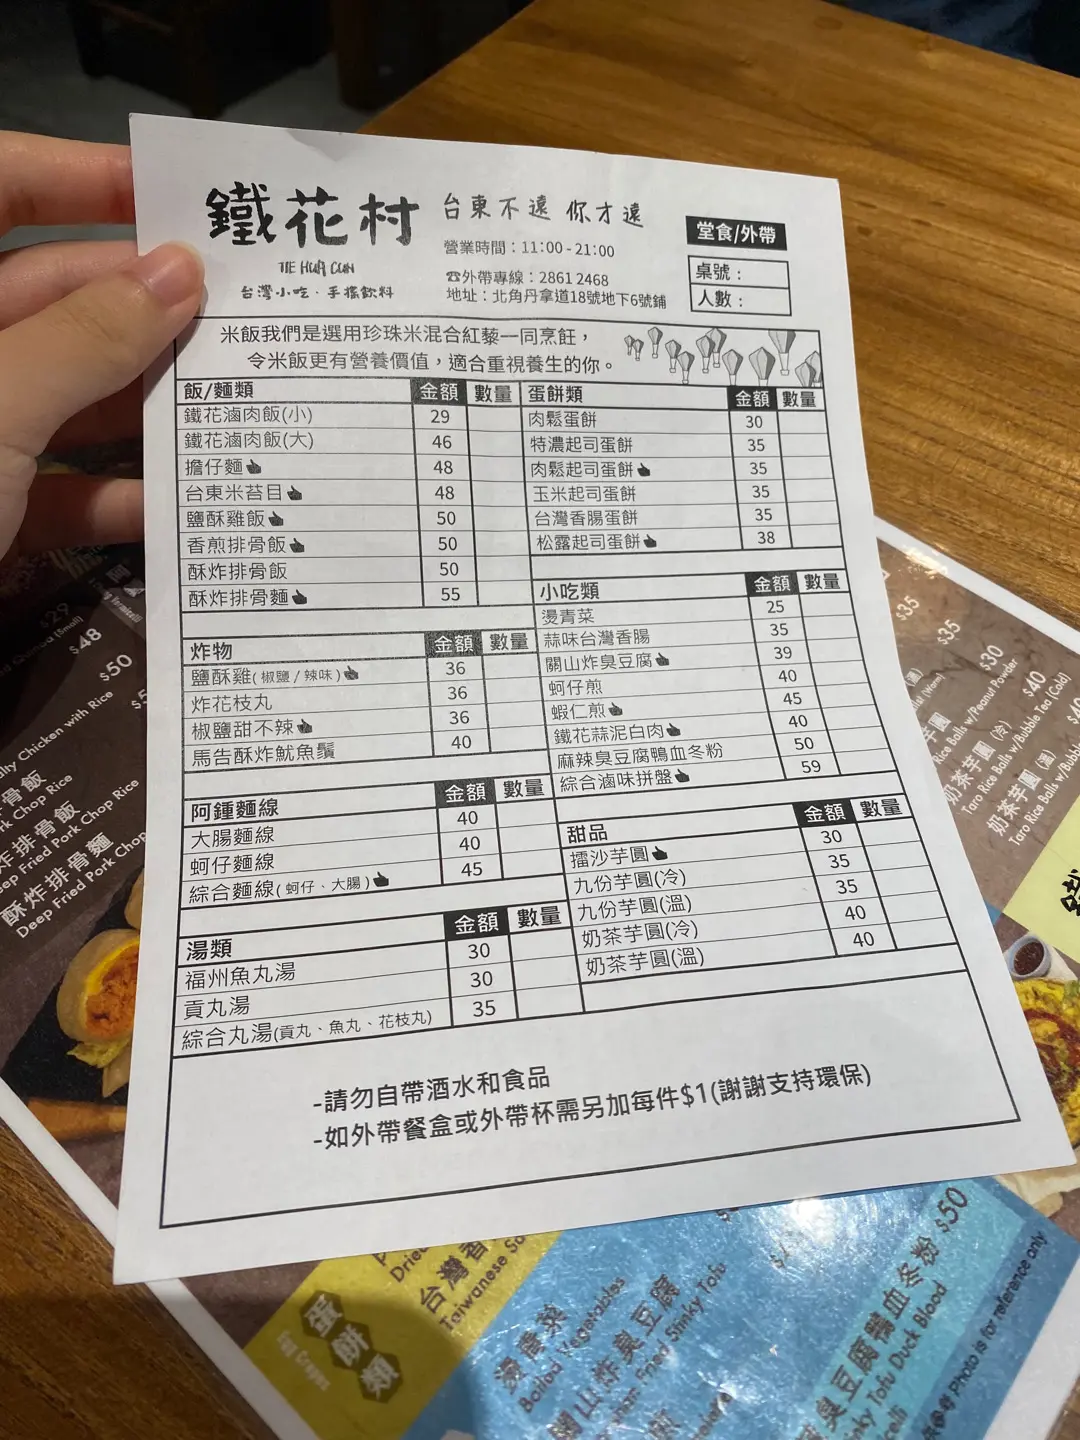 鐵花村
TIE HUA CUN
台灣小吃·手搖飲料
台東不遠 你才遠
營業時間：11:00-21:00
☎外帶專線：2861 2468
地址：北角丹拿道18號地下6號鋪
堂食/外帶
桌號：
人數：
米飯我們是選用珍珠米混合紅藜一同烹飪，
令米飯更有營養價值，適合重視養生的你。
飯/麵類 金額 數量
鐵花滷肉飯(小) 29
鐵花滷肉飯(大) 46
擔仔麵 48
台東米苔目 48
鹽酥雞飯 50
香煎排骨飯 50
酥炸排骨飯 50
酥炸排骨麵 55
炸物 金額 數量
鹽酥雞(椒鹽/辣味) 36
炸花枝丸 36
椒鹽甜不辣 36
馬告酥炸魷魚鬚 40
阿鍾麵線 金額 數量
大腸麵線 40
蚵仔麵線 40
綜合麵線(蚵仔、大腸) 45
湯類 金額 數量
福州魚丸湯 30
貢丸湯 30
綜合丸湯(貢丸、魚丸、花枝丸) 35
蛋餅類 金額 數量
肉鬆蛋餅 30
特濃起司蛋餅 35
肉鬆起司蛋餅 35
玉米起司蛋餅 35
台灣香腸蛋餅 35
松露起司蛋餅 38
小吃類 金額 數量
燙青菜 25
蒜味台灣香腸 35
關山炸臭豆腐 39
蚵仔煎 40
蝦仁煎 45
鐵花蒜泥白肉 40
麻辣臭豆腐鴨血冬粉 50
綜合滷味拼盤 59
甜品 金額 數量
擂沙芋圓 30
九份芋圓(冷) 35
九份芋圓(溫) 35
奶茶芋圓(冷) 40
奶茶芋圓(溫) 40
-請勿自帶酒水和食品
-如外帶餐盒或外帶杯需另加每件$1(謝謝支持環保)
$29
$48
$50
Chicken with Rice
骨飯
Pork Chop Rice
炸排骨飯
Deep Fried Pork Chop Rice
酥炸排骨麵
Deep Fried Pork Chop
$35
$35
$30
$40
Rice Balls w/Peanut Powder
奶茶芋圓(冷)
Taro Rice Balls w/Bubble Tea(Cold)
奶茶芋圓(溫)
Taro Rice Balls w/Bubble
台灣香
Taiwanese Sa
蛋餅類
Egg Crepes
燙青菜
Boiled Vegetables
關山炸臭豆腐
Fried Stinky Tofu
臭豆腐鴨血冬粉 $50
Stinky Tofu Duck Blood
Photo is for reference only